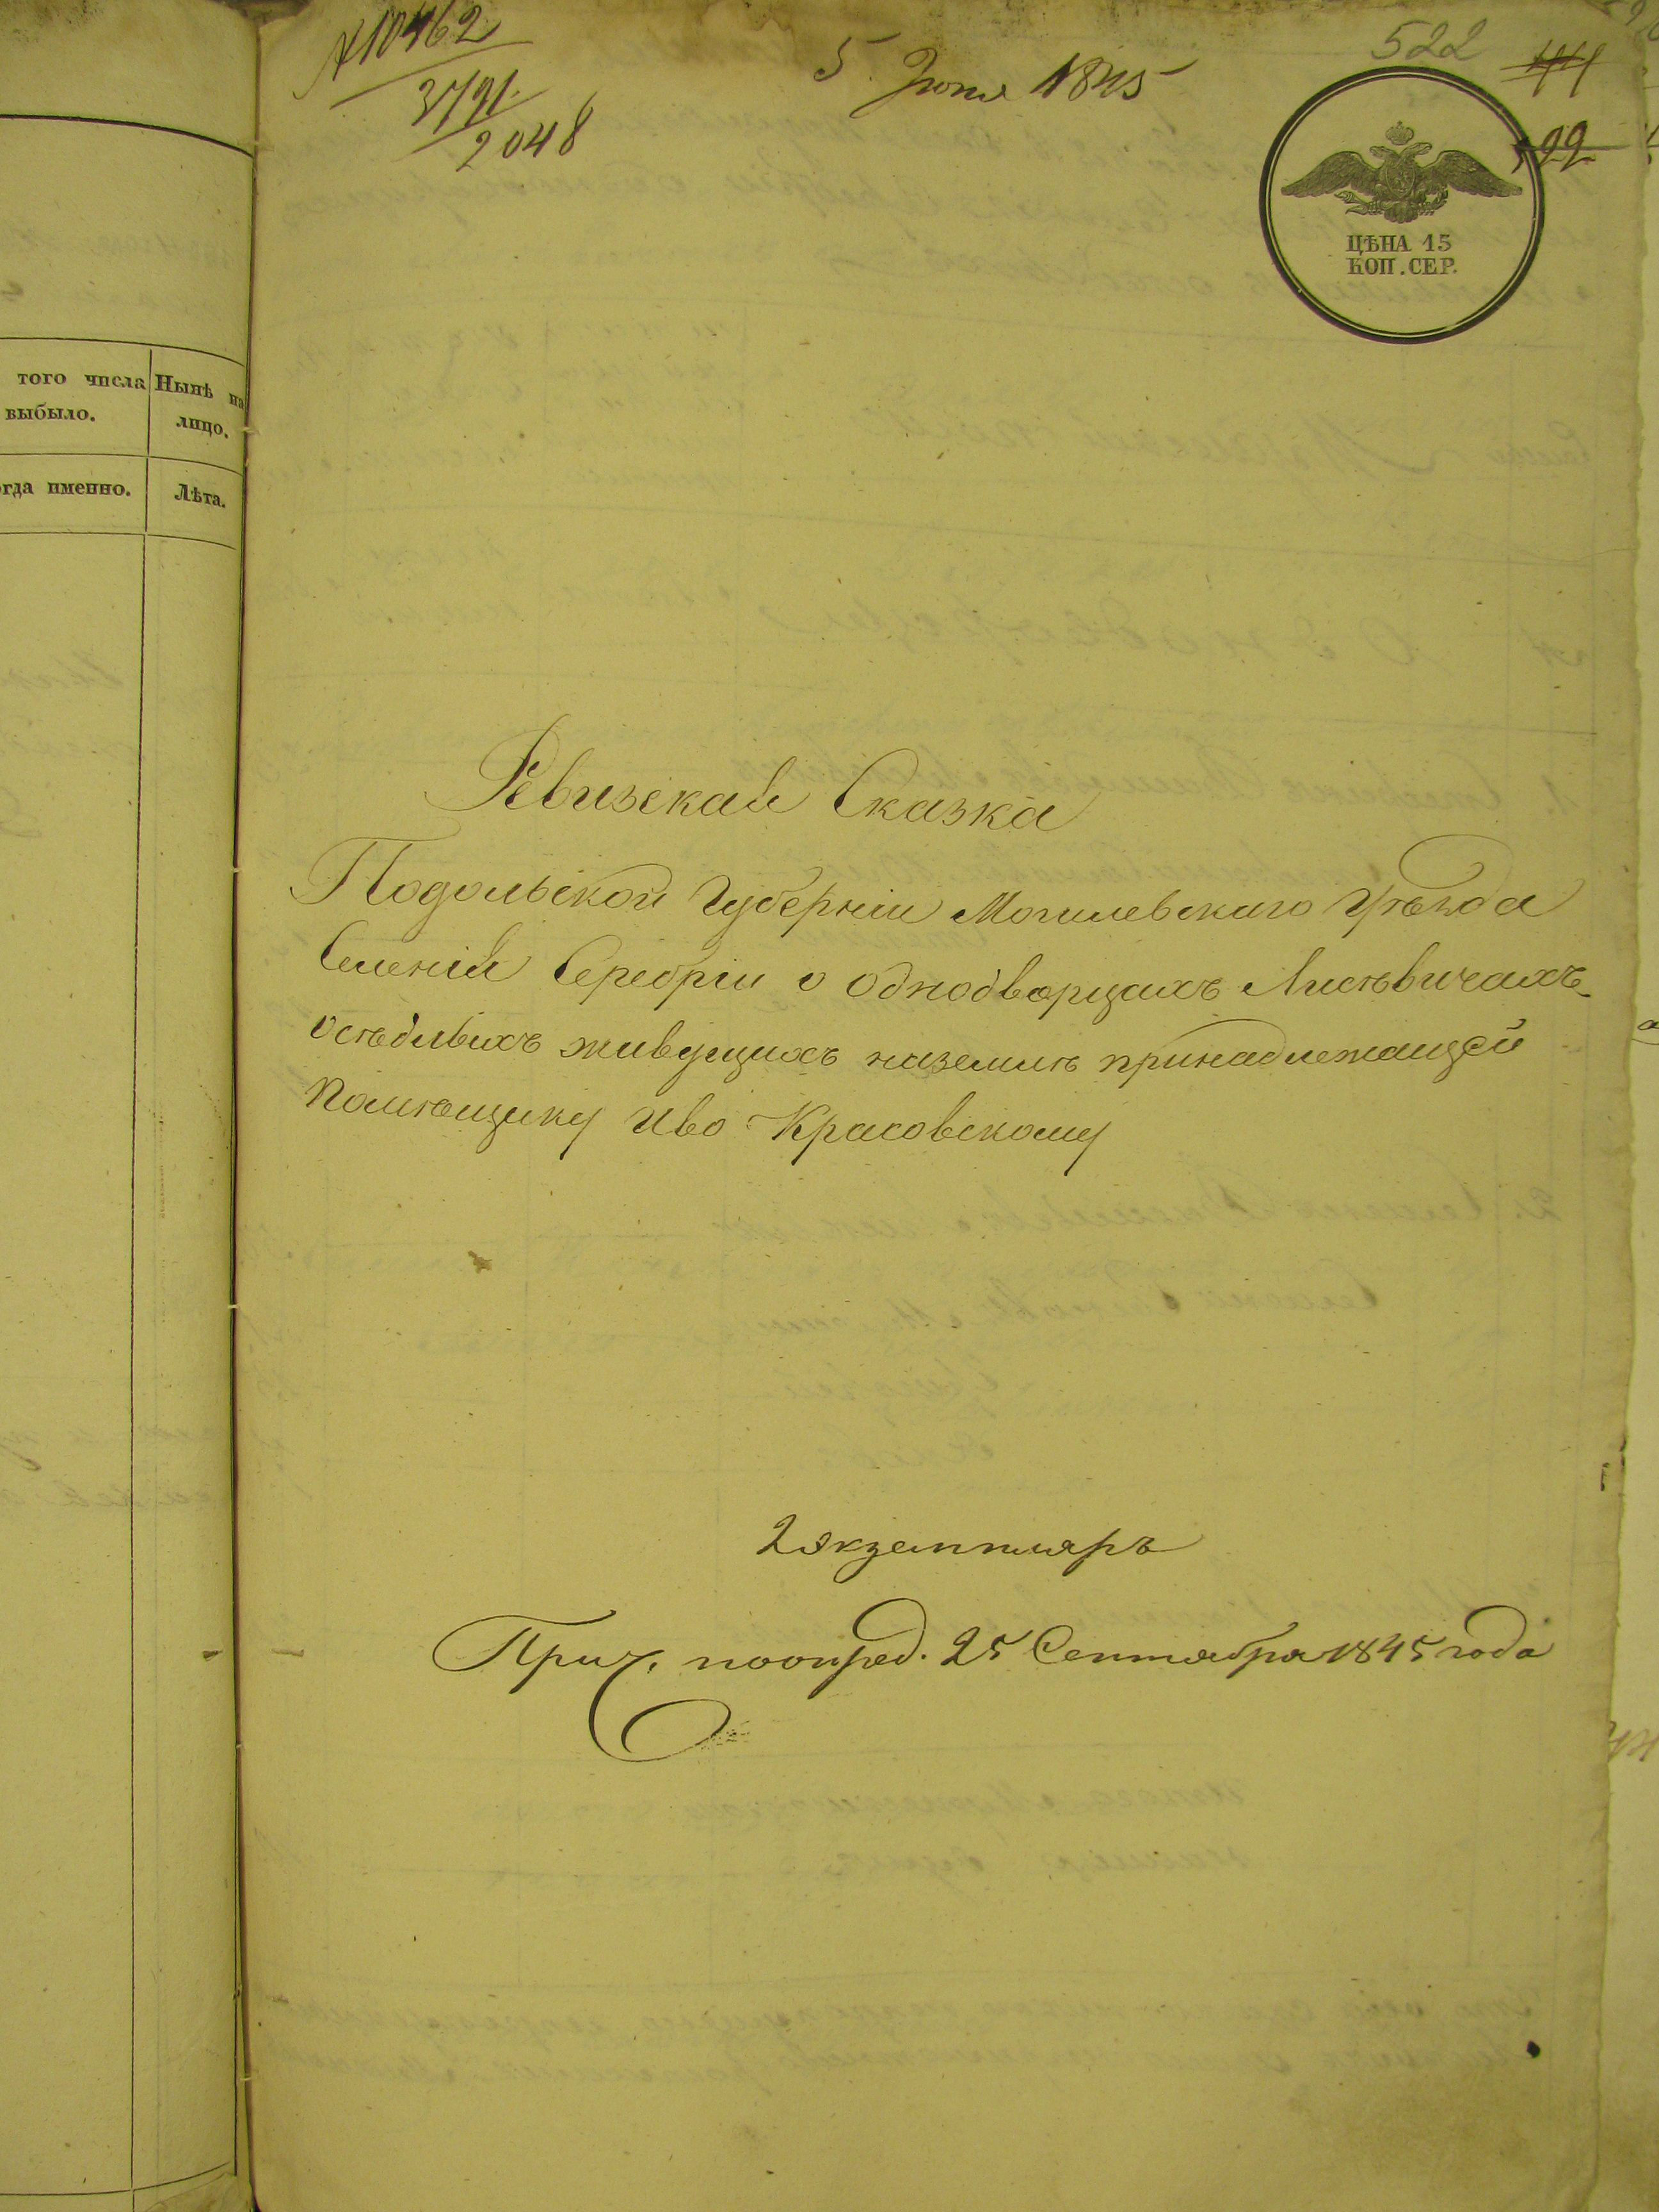 № 10462
3791.
2048
5 Июня 1845
522
ЦѢНА 15
КОП. СЕР.
того числа
выбыло.
Нынѣ на
лицо.
огда именно.
Лѣта.
Ревизская Сказка
Подольской Губерніи Могилевскаго Уѣзда
Селенія Серебріи о Однодворцахъ Лисѣвичахъ
осѣдлыхъ живущихъ наземлѣ принадлежащей
Помѣщику Иво Красовскому
2 экземпляръ
Прич. поопред. 25 Сентября 1845 года